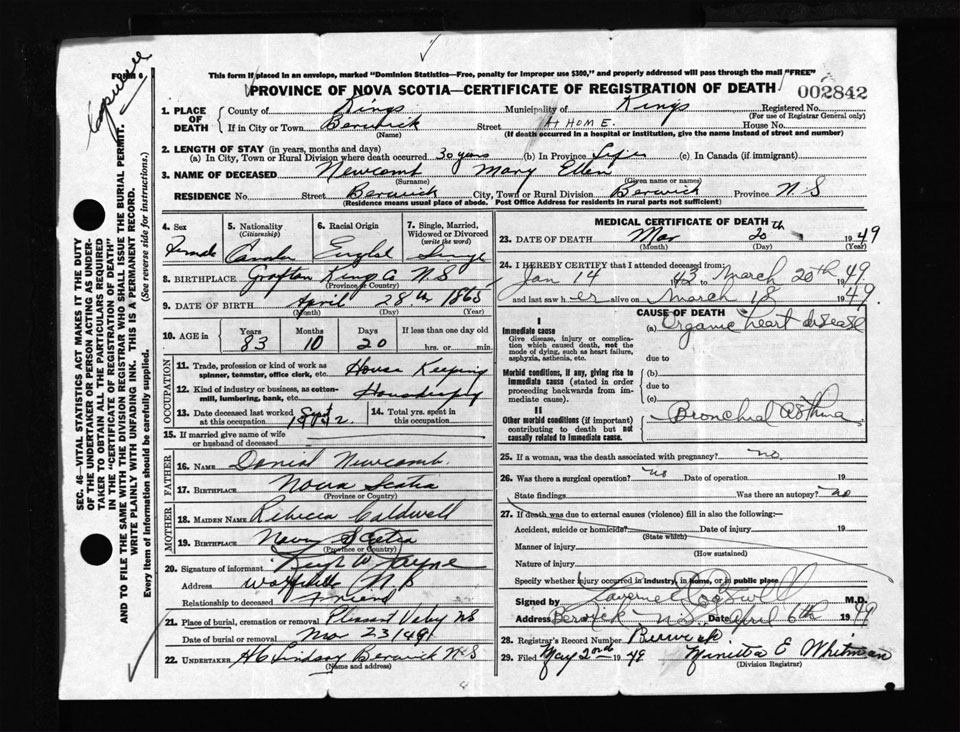 FORM
This form if placed in an envelope, marked "Dominion Statistics—Free, penalty for improper use $300," and properly addressed will pass through the mail "FREE"
PROVINCE OF NOVA SCOTIA—CERTIFICATE OF REGISTRATION OF DEATH
002842
1. PLACE OF DEATH
County of Kings Municipality of Kings Registered No.
(For use of Registrar General only)
If in City or Town Berwick Street AT HOME. House No.
(Name) (If death occurred in a hospital or institution, give the name instead of street and number)
2. LENGTH OF STAY (in years, months and days)
(a) In City, Town or Rural Division where death occurred 30 years (b) In Province Life (c) In Canada (if immigrant)
3. NAME OF DECEASED Newcomb Mary Ellen
(Surname) (Given name or names)
RESIDENCE No. Street Berwick City, Town or Rural Division Berwick Province N S
(Residence means usual place of abode. Post Office Address for residents in rural parts not sufficient)
4. Sex Female
5. Nationality (Citizenship)
6. Racial Origin
7. Single, Married, Widowed or Divorced (write the word) Single
8. BIRTHPLACE Grafton Kings Co N.S
(Province or Country)
9. DATE OF BIRTH April 28th 1865
(Month) (Day) (Year)
10. AGE in Years Months Days If less than one day old
83 10 20 hrs. or min.
OCCUPATION
11. Trade, profession or kind of work as spinner, teamster, office clerk, etc. House Keeping
12. Kind of industry or business, as cotton-mill, lumbering, bank, etc.
13. Date deceased last worked at this occupation Sept
14. Total yrs. spent in this occupation
15. If married give name of wife or husband of deceased
FATHER
16. NAME Daniel Newcomb.
17. BIRTHPLACE Nova Scotia
(Province or Country)
MOTHER
18. MAIDEN NAME Rebecca Caldwell
19. BIRTHPLACE Nova Scotia
(Province or Country)
20. Signature of informant
Address N.S
Relationship to deceased Friend
21. Place of burial, cremation or removal Plesant Valey NS
Date of burial or removal Mar 23/49
22. UNDERTAKER HC Lindsay Berwick N.S
(Name and address)
MEDICAL CERTIFICATE OF DEATH
23. DATE OF DEATH Mar 20th 1949
(Month) (Day) (Year)
24. I HEREBY CERTIFY that I attended deceased from:
Jan 14 43 to March 20th 1949
and last saw her alive on March 18 1949.
CAUSE OF DEATH
I
Immediate cause (a) Organic heart disease
Give disease, injury or complication which caused death, not the mode of dying, such as heart failure, asphyxia, asthenia, etc.
due to
Morbid conditions, if any, giving rise to immediate cause (stated in order proceeding backwards from immediate cause).
(b)
due to
(c)
II
Other morbid conditions (if important) contributing to death but not causally related to immediate cause.
Bronchial asthma
25. If a woman, was the death associated with pregnancy? no.
26. Was there a surgical operation? no Date of operation 19
State findings Was there an autopsy? no
27. If death was due to external causes (violence) fill in also the following:—
Accident, suicide or homicide? Date of injury 19
(State which)
Manner of injury
(How sustained)
Nature of injury
Specify whether injury occurred in industry, in home, or in public place
Signed by M.D.
Address Berwick N.S. Date April 6th 1949
28. Registrar's Record Number Berwick
29. Filed May 2nd 1949 E Whitman
(Division Registrar)
SEC. 46—VITAL STATISTICS ACT MAKES IT THE DUTY
OF THE UNDERTAKER OR PERSON ACTING AS UNDER-
TAKER TO OBTAIN ALL THE PARTICULARS REQUIRED
IN THE "CERTIFICATE OF REGISTRATION OF DEATH"
AND TO FILE THE SAME WITH THE DIVISION REGISTRAR WHO SHALL ISSUE THE BURIAL PERMIT.
WRITE PLAINLY WITH UNFADING INK. THIS IS A PERMANENT RECORD.
Every item of information should be carefully supplied. (See reverse side for instructions.)